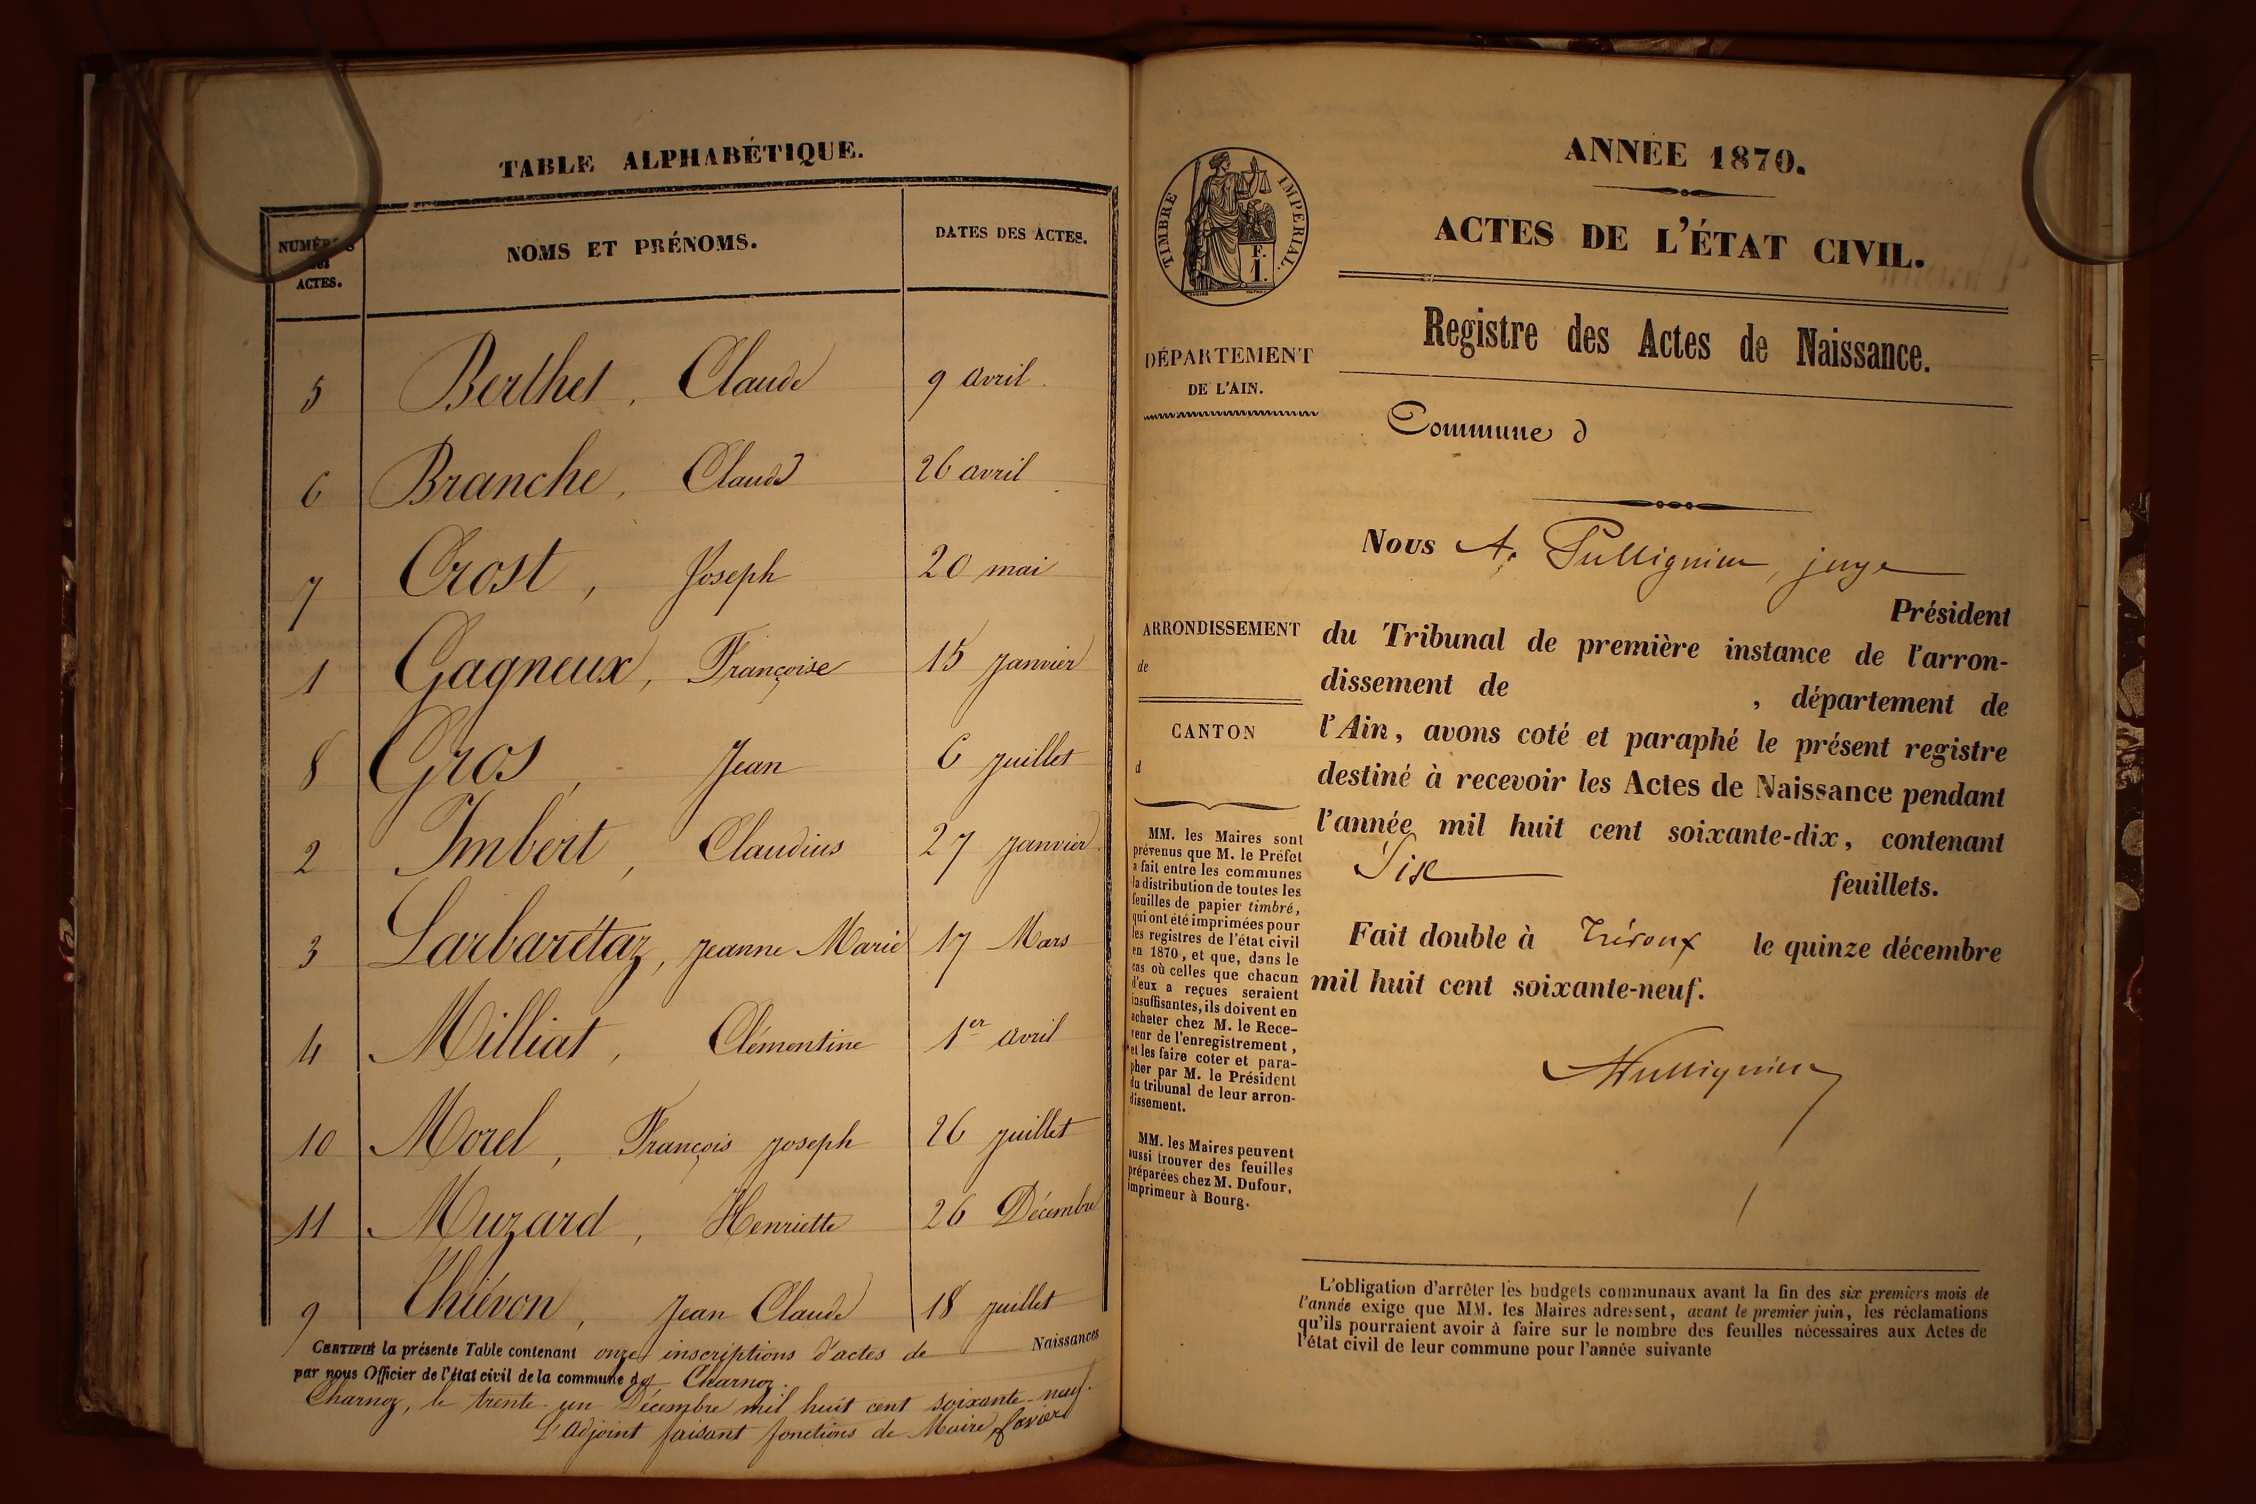 TABLE ALPHABÉTIQUE.
NUMÉROS
des
ACTES.
NOMS ET PRÉNOMS.
DATES DES ACTES.
5 Berthet, Claude 9 avril.
6 Branche, Claude 26 avril
7 Crost, Joseph 20 mai
1 Gagneux, Françoise 15 janvier
8 Gros, Jean 6 juillet
2 Imbert, Claudius 27 janvier
3 Larbarétaz, Jeanne Marie 17 Mars
4 Milliat, Clémentine 1er avril
10 Morel, François joseph 26 juillet
11 Muzard, Henriette 26 Décembre
9 Thiévon, Jean Claude 18 juillet
CERTIFIÉ la présente Table contenant onze inscriptions d'actes de Naissances
par nous Officier de l'état civil de la commune de Charnoz.
Charnoz, le trente-un Décembre mil huit cent soixante-neuf.
L'adjoint faisant fonctions de Maire
TIMBRE IMPÉRIAL.
E.
1.
DÉPARTEMENT
DE L'AIN.
ARRONDISSEMENT
de
CANTON
d
MM. les Maires sont
prévenus que M. le Préfet
a fait entre les communes
la distribution de toutes les
feuilles de papier timbré,
qui ont été imprimées pour
les registres de l'état civil
en 1870, et que, dans le
cas où celles que chacun
d'eux a reçues seraient
insuffisantes, ils doivent en
acheter chez M. le Rece-
veur de l'enregistrement,
et les faire coter et para-
pher par M. le Président
du tribunal de leur arron-
dissement.
MM. les Maires peuvent
aussi trouver des feuilles
préparées chez M. Dufour,
imprimeur à Bourg.
ANNÉE 1870.
ACTES DE L'ÉTAT CIVIL.
Registre des Actes de Naissance.
Commune d
Nous A. juge
Président
du Tribunal de première instance de l'arron-
dissement de , département de
l'Ain, avons coté et paraphé le présent registre
destiné à recevoir les Actes de Naissance pendant
l'année mil huit cent soixante-dix, contenant
Six feuillets.
Fait double à Trévoux le quinze décembre
mil huit cent soixante-neuf.
L'obligation d'arrêter les budgets communaux avant la fin des six premiers mois de
l'année exige que MM. les Maires adressent, avant le premier juin, les réclamations
qu'ils pourraient avoir à faire sur le nombre des feuilles nécessaires aux Actes de
l'état civil de leur commune pour l'année suivante